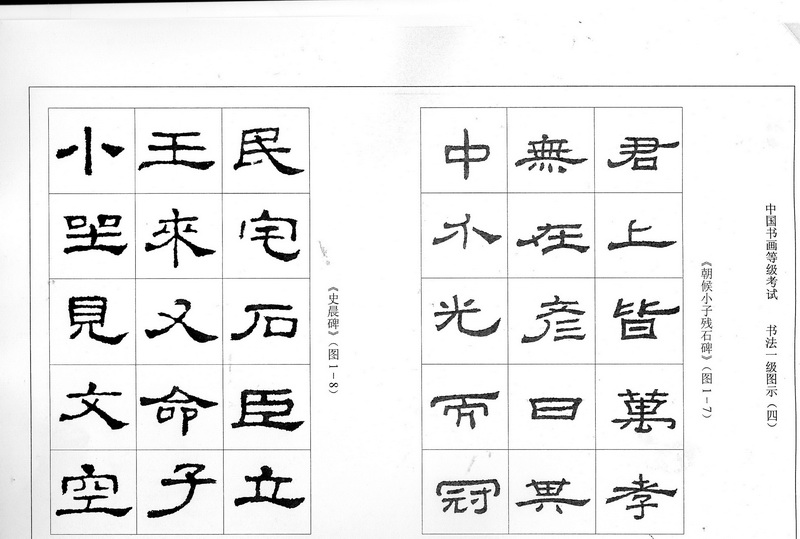 中国书画等级考试 书法一级图示（四）
《朝候小子残石碑》（图1－7）
君上皆萬孝
無在彦日其
中不光而冠
《史晨碑》（图1－8）
民宅石臣立
王來又命子
小坐見文空